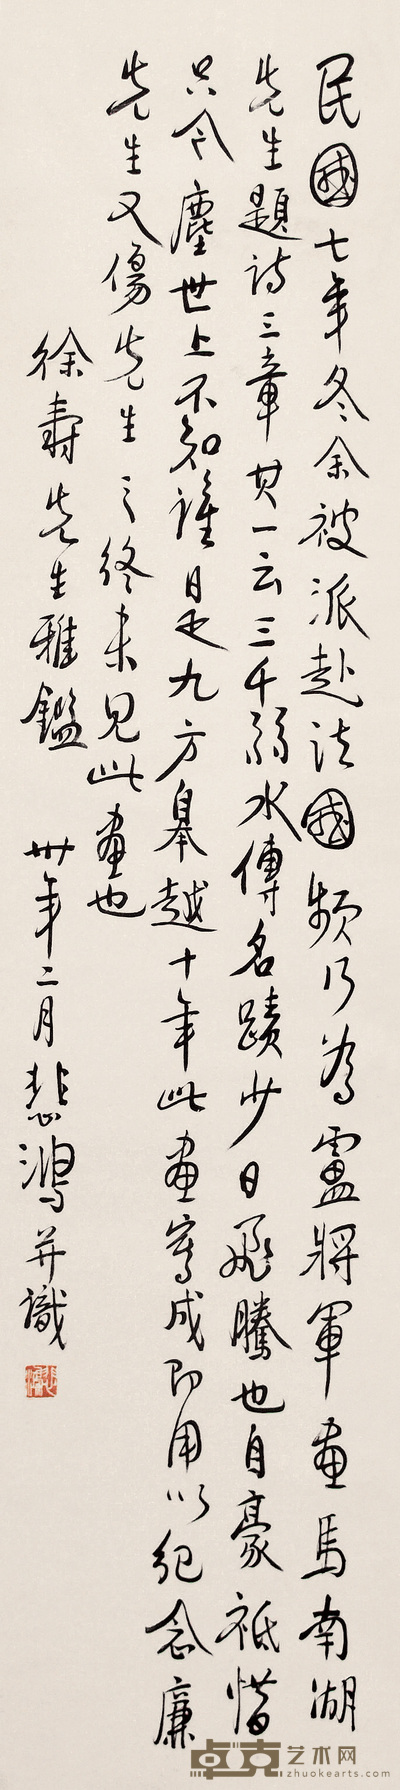 民國七年冬余被派赴法國頻行為盧將軍畫馬南湖
先生題詩三章其一云三千弱水傳名蹟少日飛騰也自豪祗惜
只今塵世上不知誰是九方皋越十年此畫寫成即用以紀念廉
先生又傷先生之終未見此畫也
徐壽先生雅鑑 卅年二月悲鴻并識
卓克艺术网
zhuokearts.com